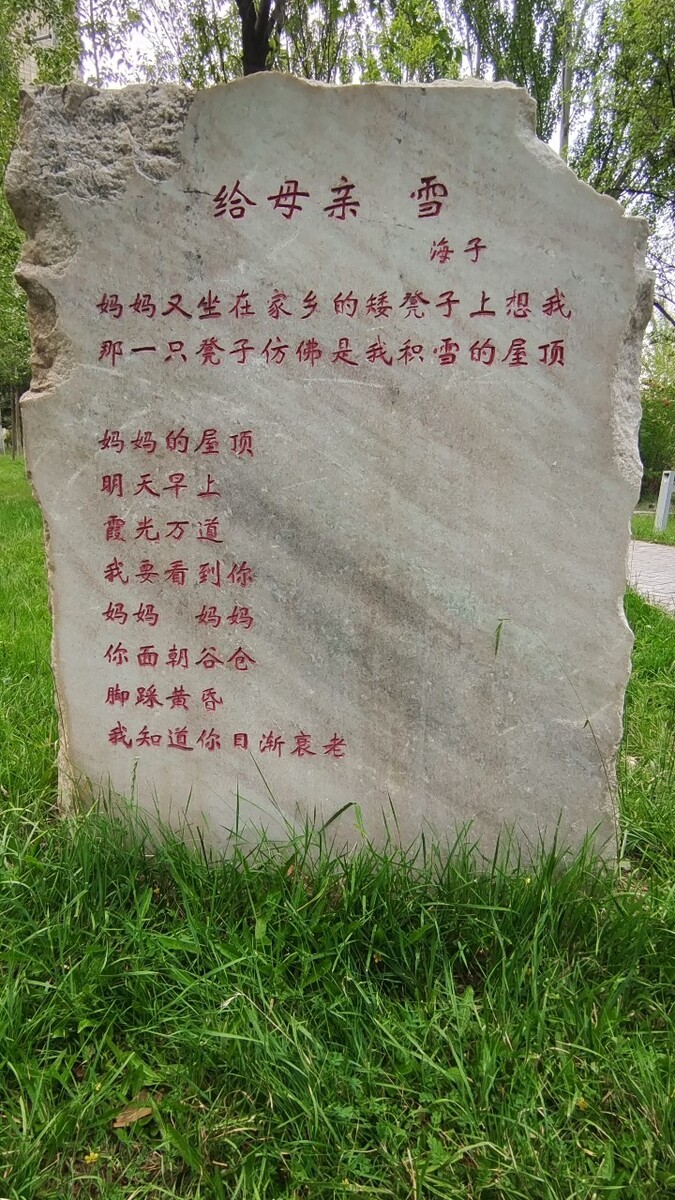 给母亲 雪
海子
妈妈又坐在家乡的矮凳子上想我
那一只凳子仿佛是我积雪的屋顶
妈妈的屋顶
明天早上
霞光万道
我要看到你
妈妈 妈妈
你面朝谷仓
脚踩黄昏
我知道你日渐衰老